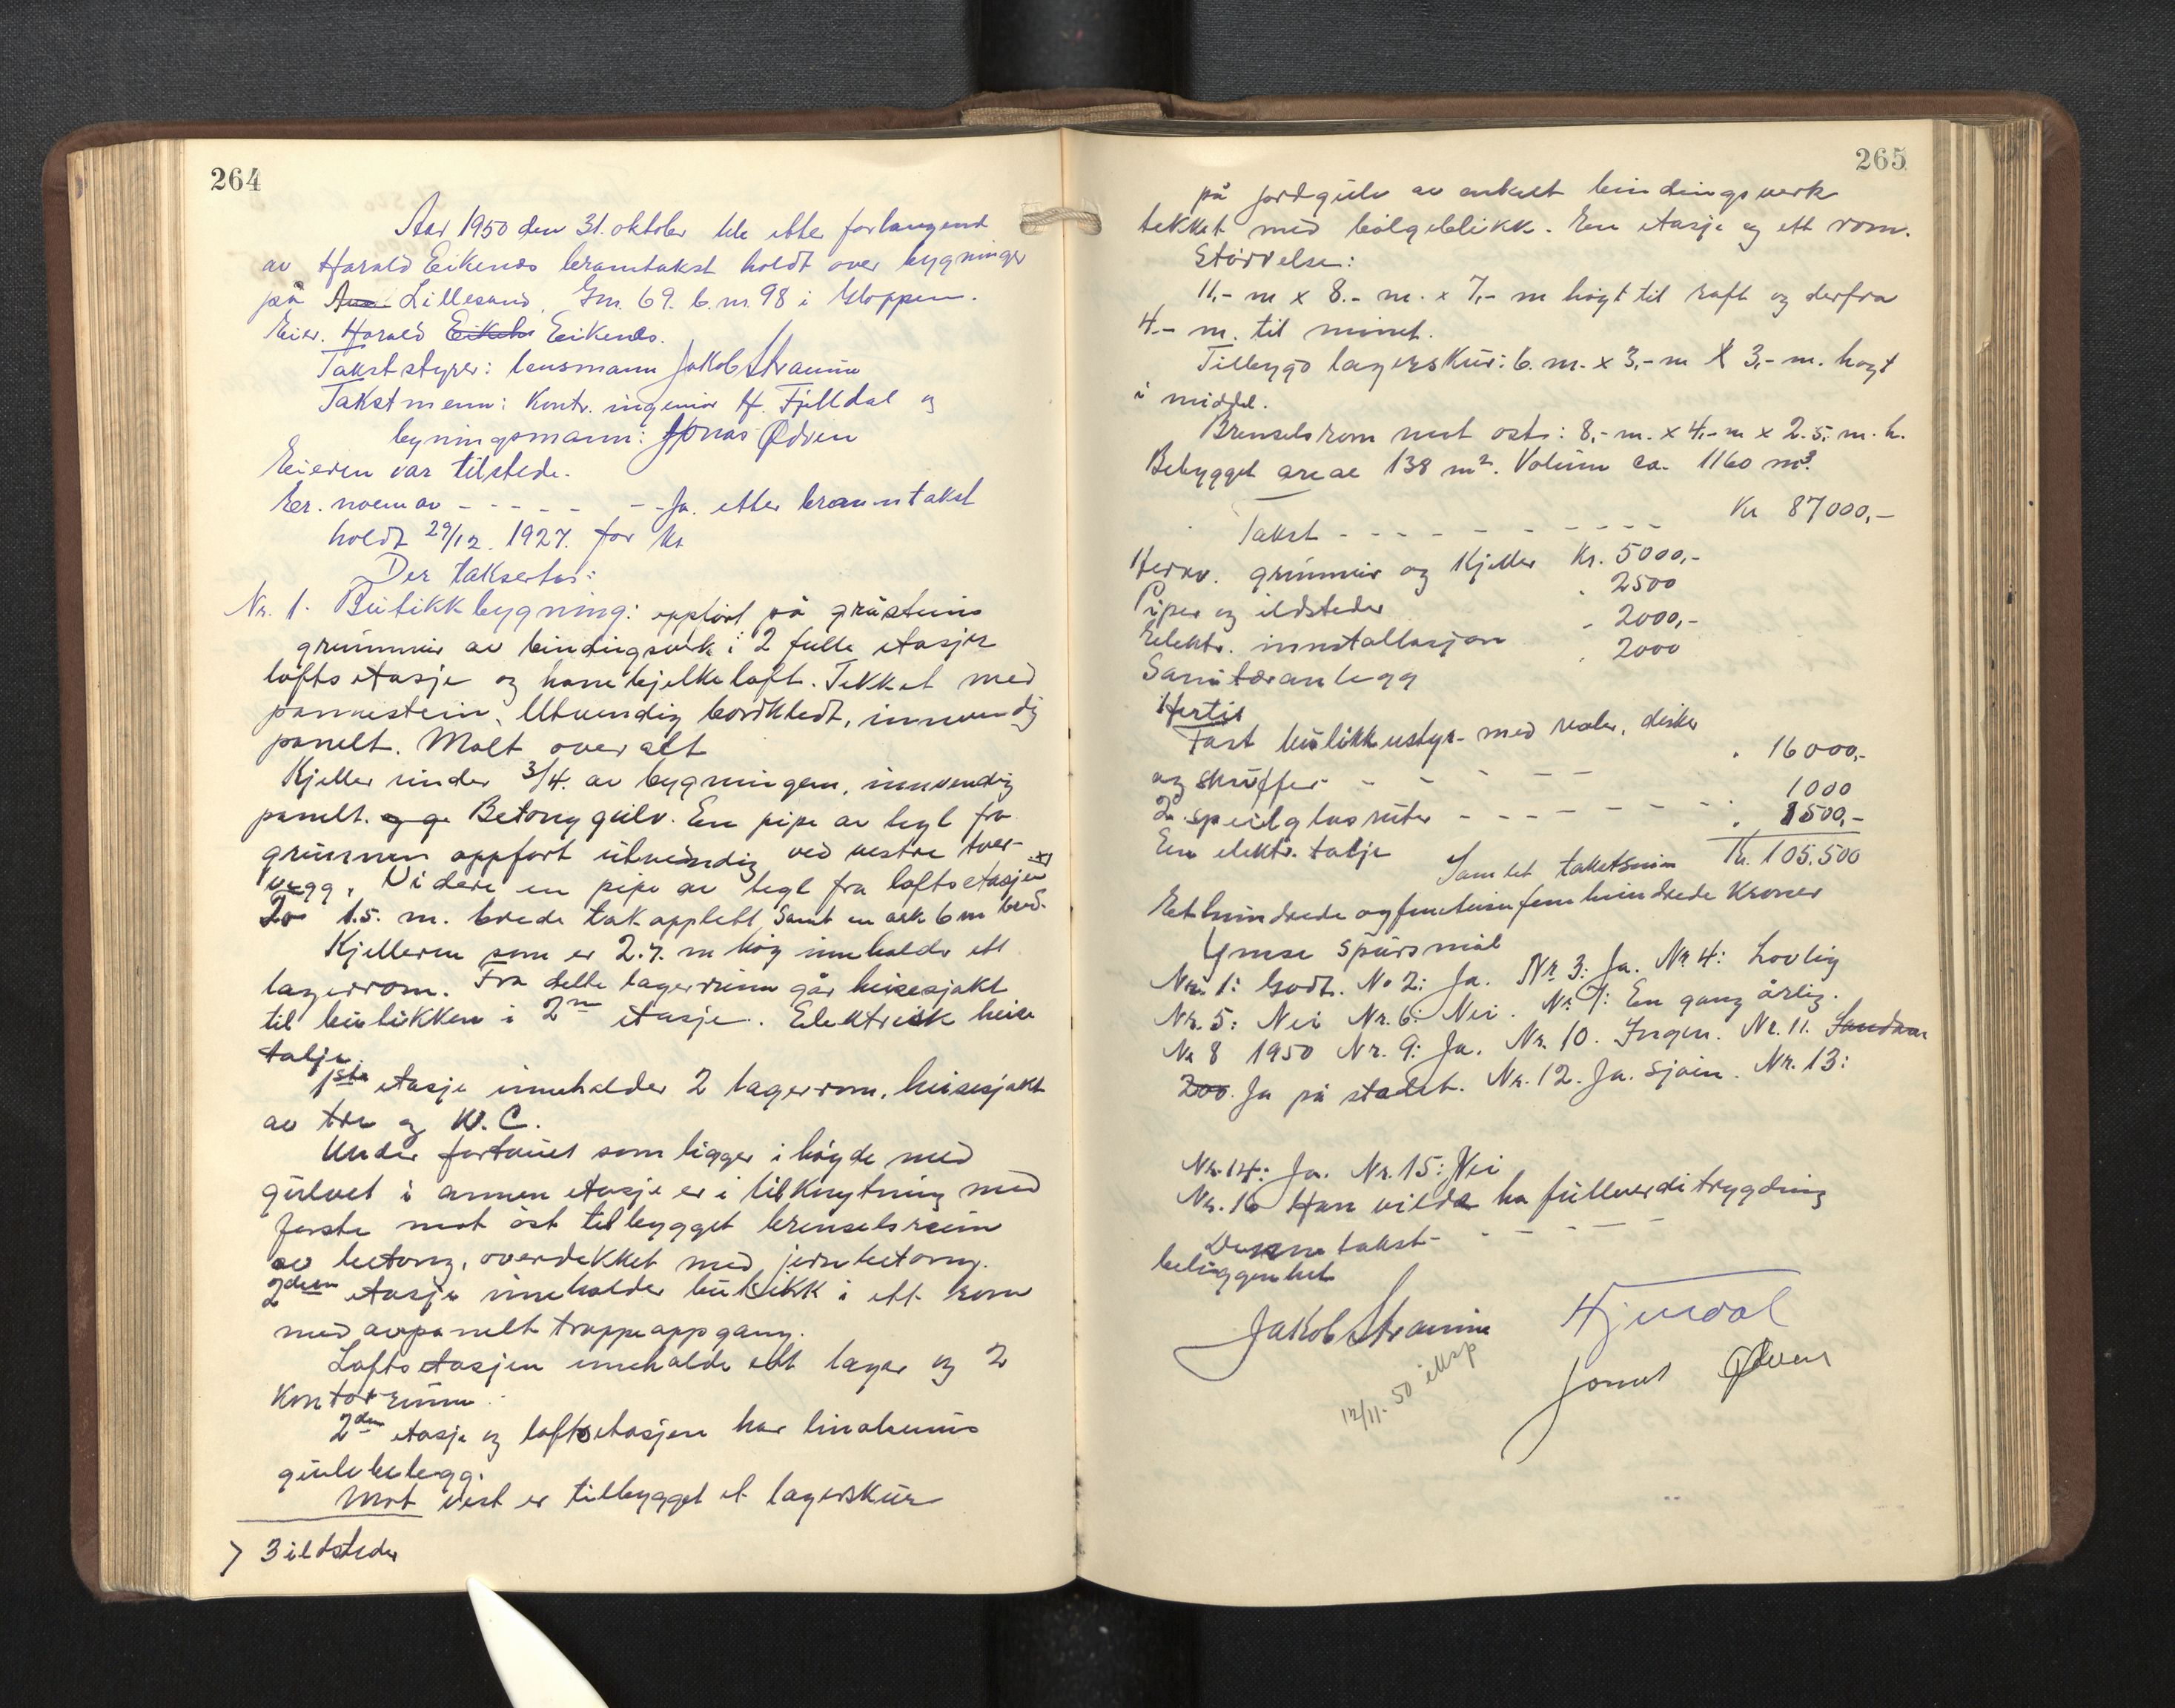 264
Aar 1950 den 31. oktober ble etter forlangend
av Harald Eikenæs branntakst holdt over bygninger
på Lillesand, Gnr. 69. b.nr. 98 i Gloppen.
Eier. Harald Eikenæs.
Takststyrer: lensmann Jakob Straume
Takstmenn: Kontr. ingeniør H. Fjelldal og
byningsmann: Jonas Ødven
Eieren var tilstede.
Er. noen av - - - - - - Ja. etter branntakst
holdt 29/12. 1927. for kr
Der taksertes:
Nr. 1. Butikkbygning: oppført på gråsteins
grunnmur av bindingsverk i 2 fulle etasjer
loftsetasje og hanebjelkeloft. Tekket med
pannestein. Utvendig bordkledt, innvendig
panelt. Malt overalt
Kjeller under 3/4. av bygningen, innvendig
panelt. Betong gulv. En pipe av tegl fra
grunnen oppført utvendig ved vestre tver-
vegg. Videre en pipe av tegl fra loftsetasjen x)
1.5. m. brede takopplett samt en ark 6 m bred.
Kjelleren som er 2.7. m høg inneholder ett
lagerrom. Fra dette lagerrum går heisesjakt
til butikken i 2n etasje. Elektrisk heise
talje.
1ste etasje inneholder 2 lagerrom, heisesjakt
av tre og W.C.
Under fortauet som ligger i høyde med
gulvet i annen etasje er i tilknytning med
første mot øst tilbygget brenselsrum
av betong, overdekket med jernbetong.
2den etasje inneholder butikk i ett rom
med avpanelt trappeoppgang.
Loftsetasjen inneholder ett lager og 2
kontorrum.
2den etasje og loftsetasjen har linoleums
gulvbelegg.
Mot vest er tilbygget et lagerskur
x) 3 ildsteder
265
på jordgulv av enkelt bindingsverk
tekket med bølgeblikk. En etasje og ett rom.
Størrelse:
11,- m x 8.- m. x 7,- m høgt til raft og derfra
4.- m. til mønet.
Tilbygd lagerskur: 6. m. x 3,- m x 3,- m. høgt
i middel.
Brenselsrom mot øst: 8,- m. x 4,- m x 2.5. m. h.
Bebygget areal 138 m². Volum ca. 1160 m³.
Takst - - - - - - - - - Kr 87000,-
Herav. grunnmur og Kjeller Kr. 5000,-
Piper og ildsteder " 2500
Elektr. innstallasjon " 2000,-
Sanitæranlegg " 2000
Hertil
Fast butikkustyr med reoler, disker
og skuffer - - - - - " 16000,-
2 speilglasruter - - - - - - - " 1000
En elektr. talje " 1500,-
Samlet takstsum Kr. 105.500
Ethundrede ogfemtusinfemhundrede Kroner
Ymse spursmål
Nr. 1: Godt. No 2: Ja. Nr 3: Ja. Nr 4: Lovlig
Nr. 5: Nei Nr. 6: Nei. Nr. 7: En gang årlig.
Nr 8 1950 Nr. 9: Ja. Nr. 10. Ingen. Nr. 11.
200. Ja på stedet. Nr. 12. Ja. sjøin. Nr. 13:
Nr. 14: Ja. Nr. 15: Nei
Nr. 16 Han vilde ha fullverditrygding
Denne takst - - - - -
beliggenhet
Jakob Straume HFjelldal
12/11. 50 eksp Jonas Ødven